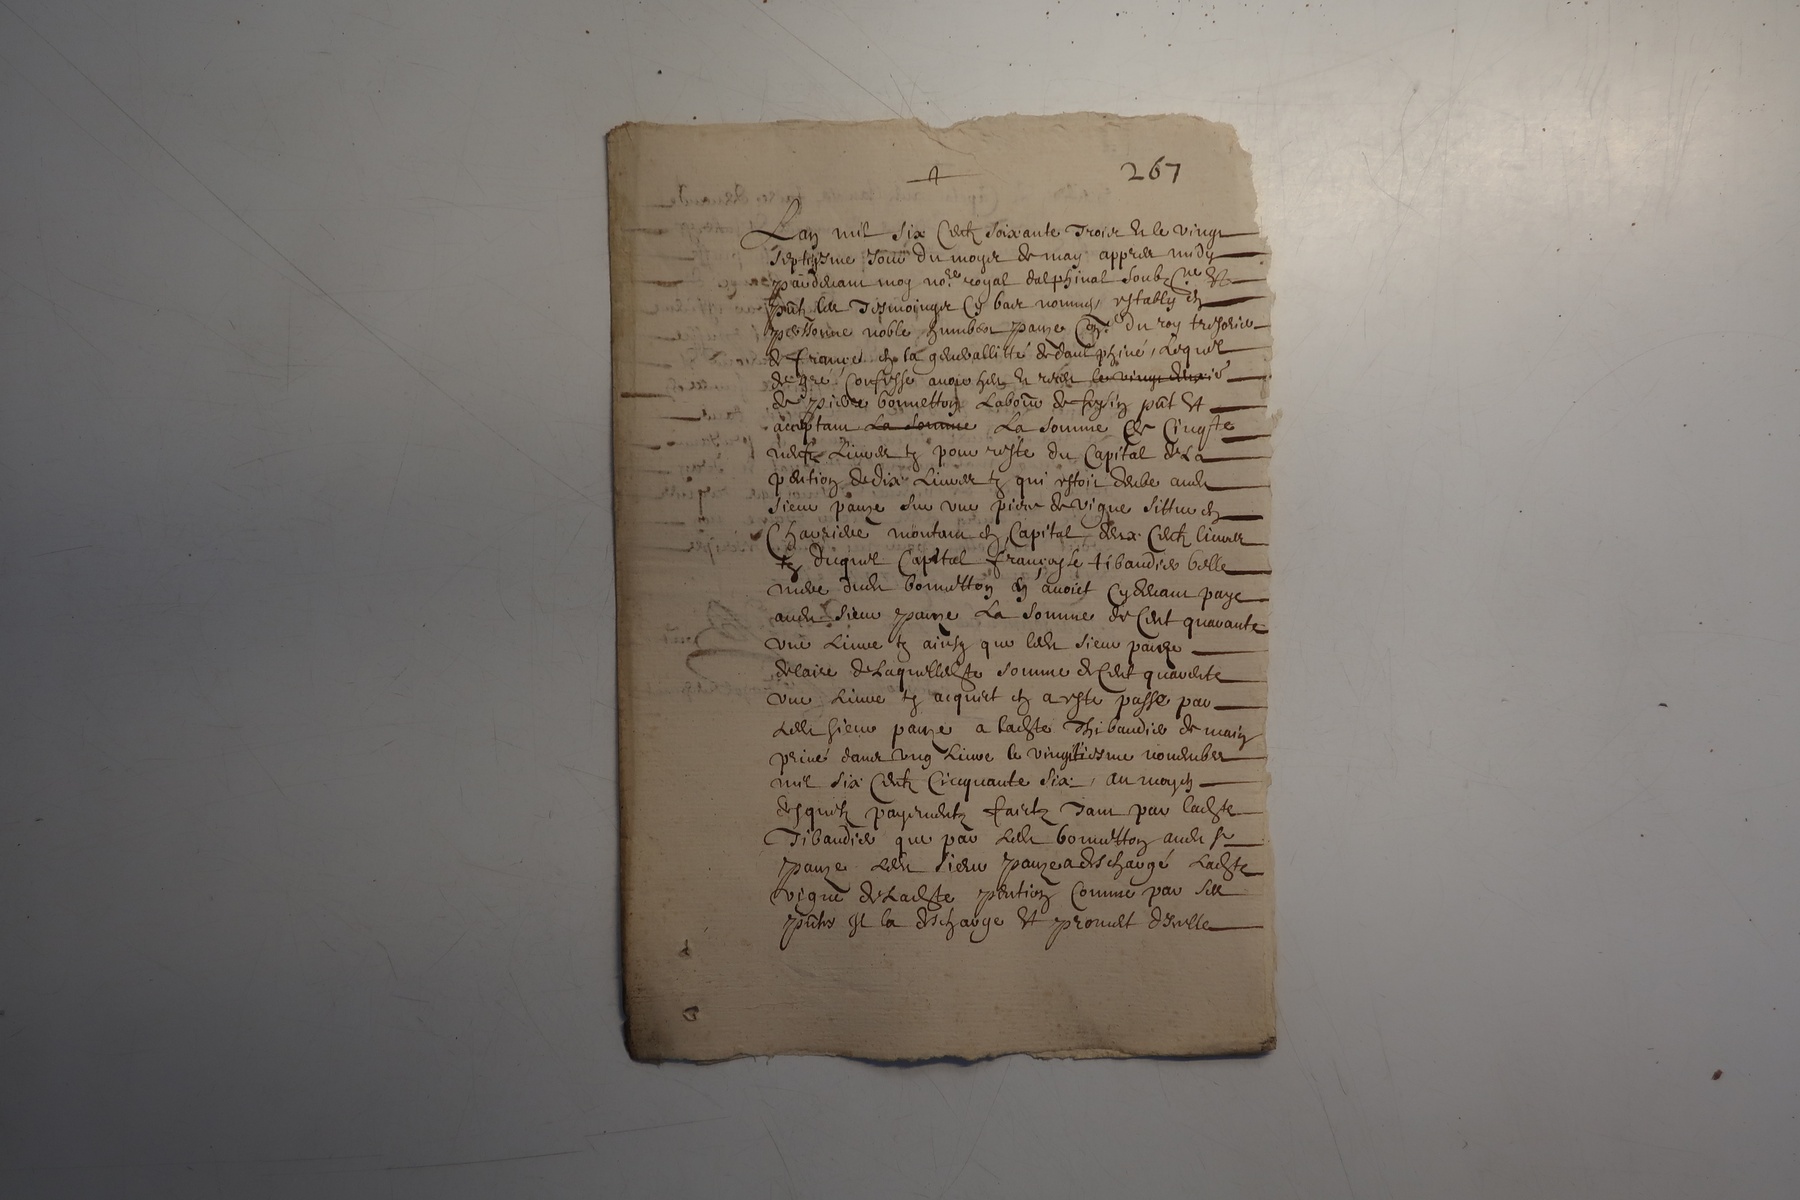 267
Lan mil six Centz soixante Trois et le vingt
septiesme Jour du moys de may appres midy
pardevant moy no.re royal dalphinal soubz.ne et
pnt les Tesmoinges Cy bas nommes, estably en
personne noble humbert panze Con.er du roy tresorier
de france en la generallitte de dauphiné, Lequel
de gré, Confesse avoir heu et receu le vingt
de pierre bonnetton Laboure de pnt et
acceptant La somme La somme de Cinqte
neuf Livres tz pour reste du Capital de La
pention de dix Livres tz qui estoit deube audt
sieur panze sur une piece de vigne sittue en
montant en Capital deux Centz livres
tz duquel Capital françoyse tibaudier belle
mere dudt bonnetton en avoiet Cydevant paye
audt sieur panze La somme de Cent quarante
une Livre tz ainsy que ledt sieur panze
declaire de Laquelle dte somme de Cent quarente
une Livre tz acquict en a este passe par
Ledt sieur panze a ladte Thibaudier de main
privé dans ung Livre le vingtiesme novembre
mil six Centz Cincquante six, au moyen
desquelz payementz faictz Tant par ladte
Tibaudier que par Ledt bonnetton audt sr
panze Ledt sieur panze a descharge Ladte
vigne de Ladte pention Comme par
pntes Il la descharge et promet